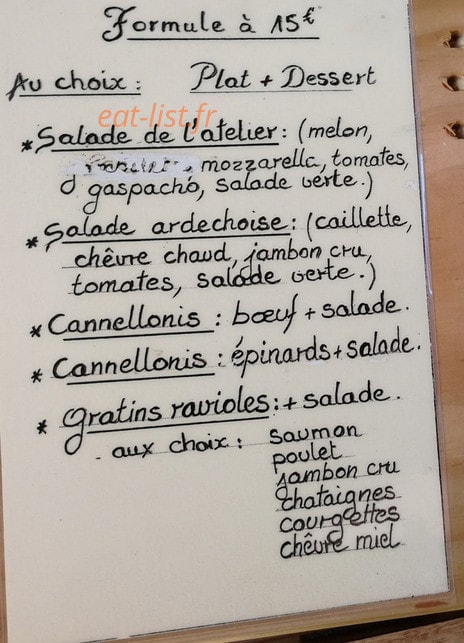 Formule à 15€
Au choix : Plat + Dessert
eat-list.fr
* Salade de l'atelier : (melon,
mozzarella, tomates,
gaspacho, salade verte.)
* Salade ardechoise : (caillette,
chêvre chaud, jambon cru,
tomates, salade verte.)
* Cannellonis : bœuf + salade.
* Cannellonis : épinards + salade.
* gratins ravioles : + salade.
. aux choix : saumon
poulet
jambon cru
chataignes
courgettes
chêvre miel